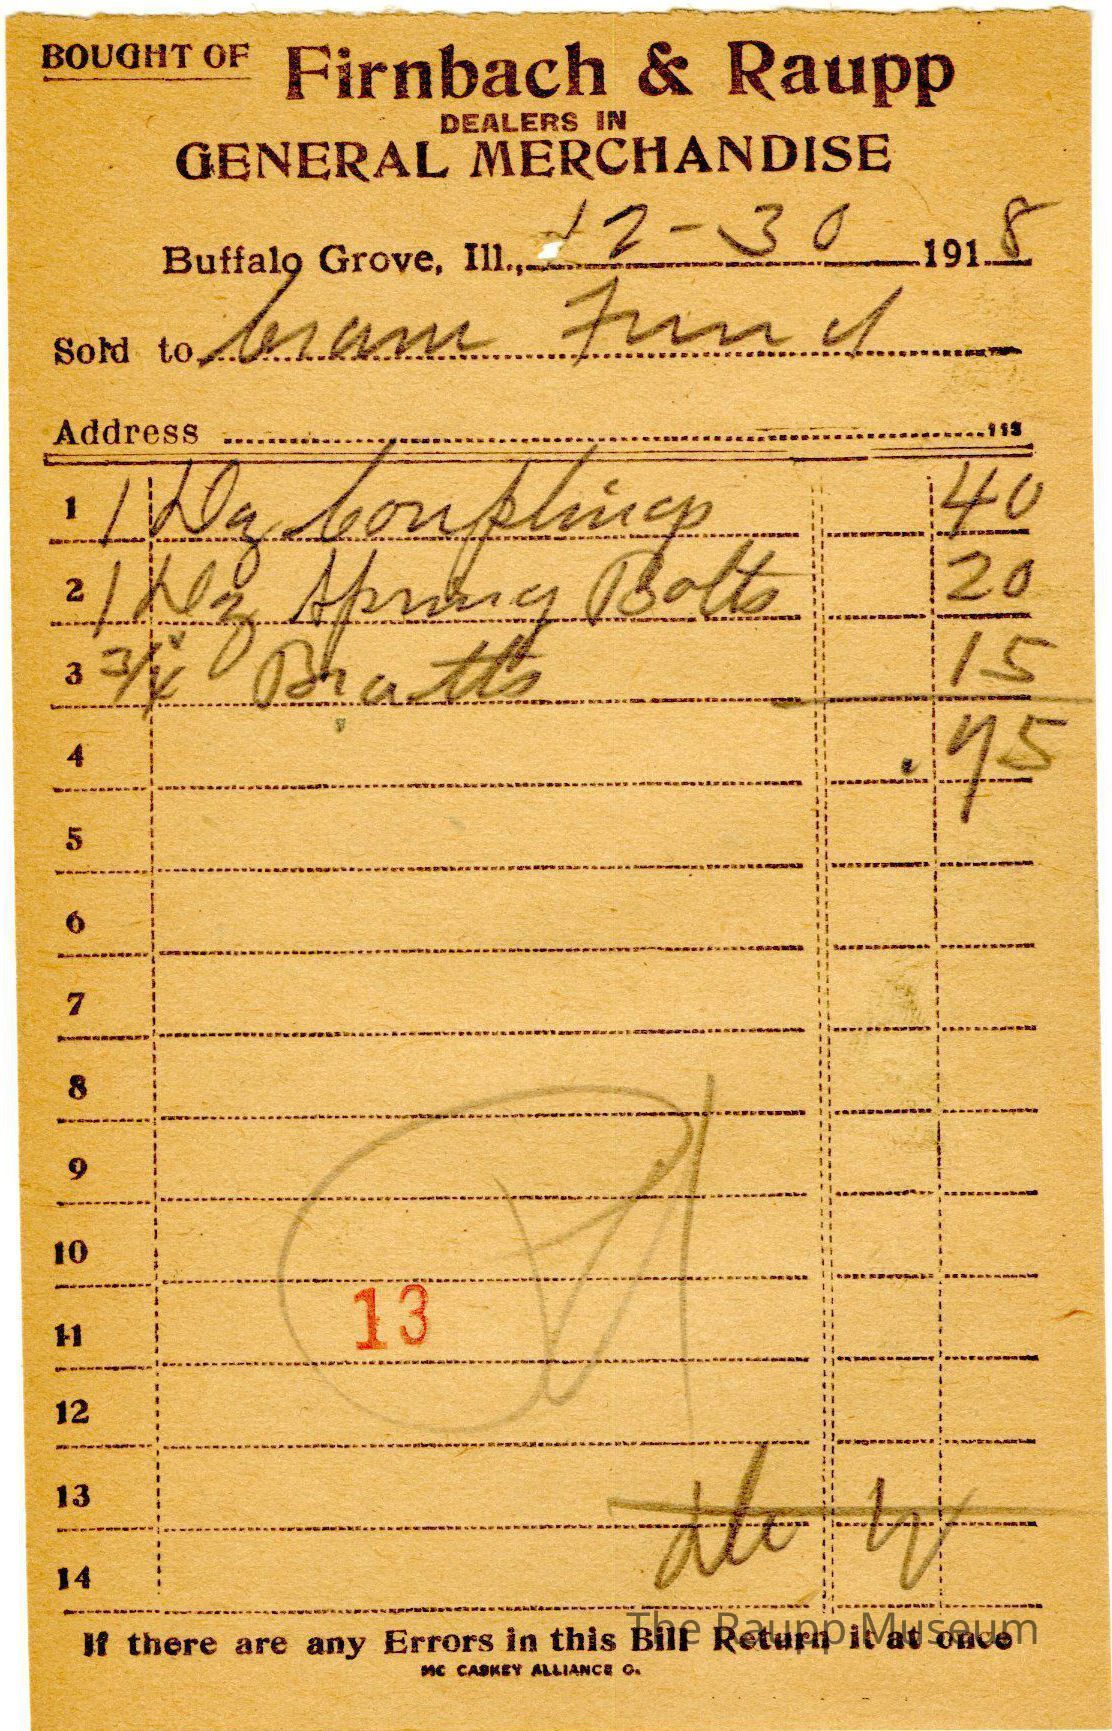 BOUGHT OF Firnbach & Raupp
DEALERS IN
GENERAL MERCHANDISE
Buffalo Grove, Ill., 12-30 1918
Sold to
Address
1 1 Dz Couplings 40
2 1 Dz Spring Bolts 20
3 3/4 15
4 .75
5
6
7
8
9
10
13
11
12
13
14
If there are any Errors in this Bill Return it at once
MC CASKEY ALLIANCE O.
The Raupp Museum